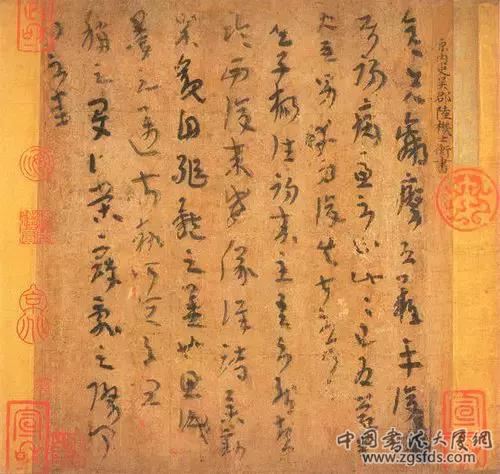 原內史吳郡陸機士衡書
彦先羸瘵恐難平復
往屬初病慮不止此此已為慶
承使唯男幸為復失前憂耳
吳子楊往初來主吾不能盡
臨西復來威儀詳跱舉動
成觀自軀體之美也思識
量之邁前執所恒有宜
稱之夏伯榮寇亂之際聞
問不悉
中國書法大厦網
www.zgsfds.com